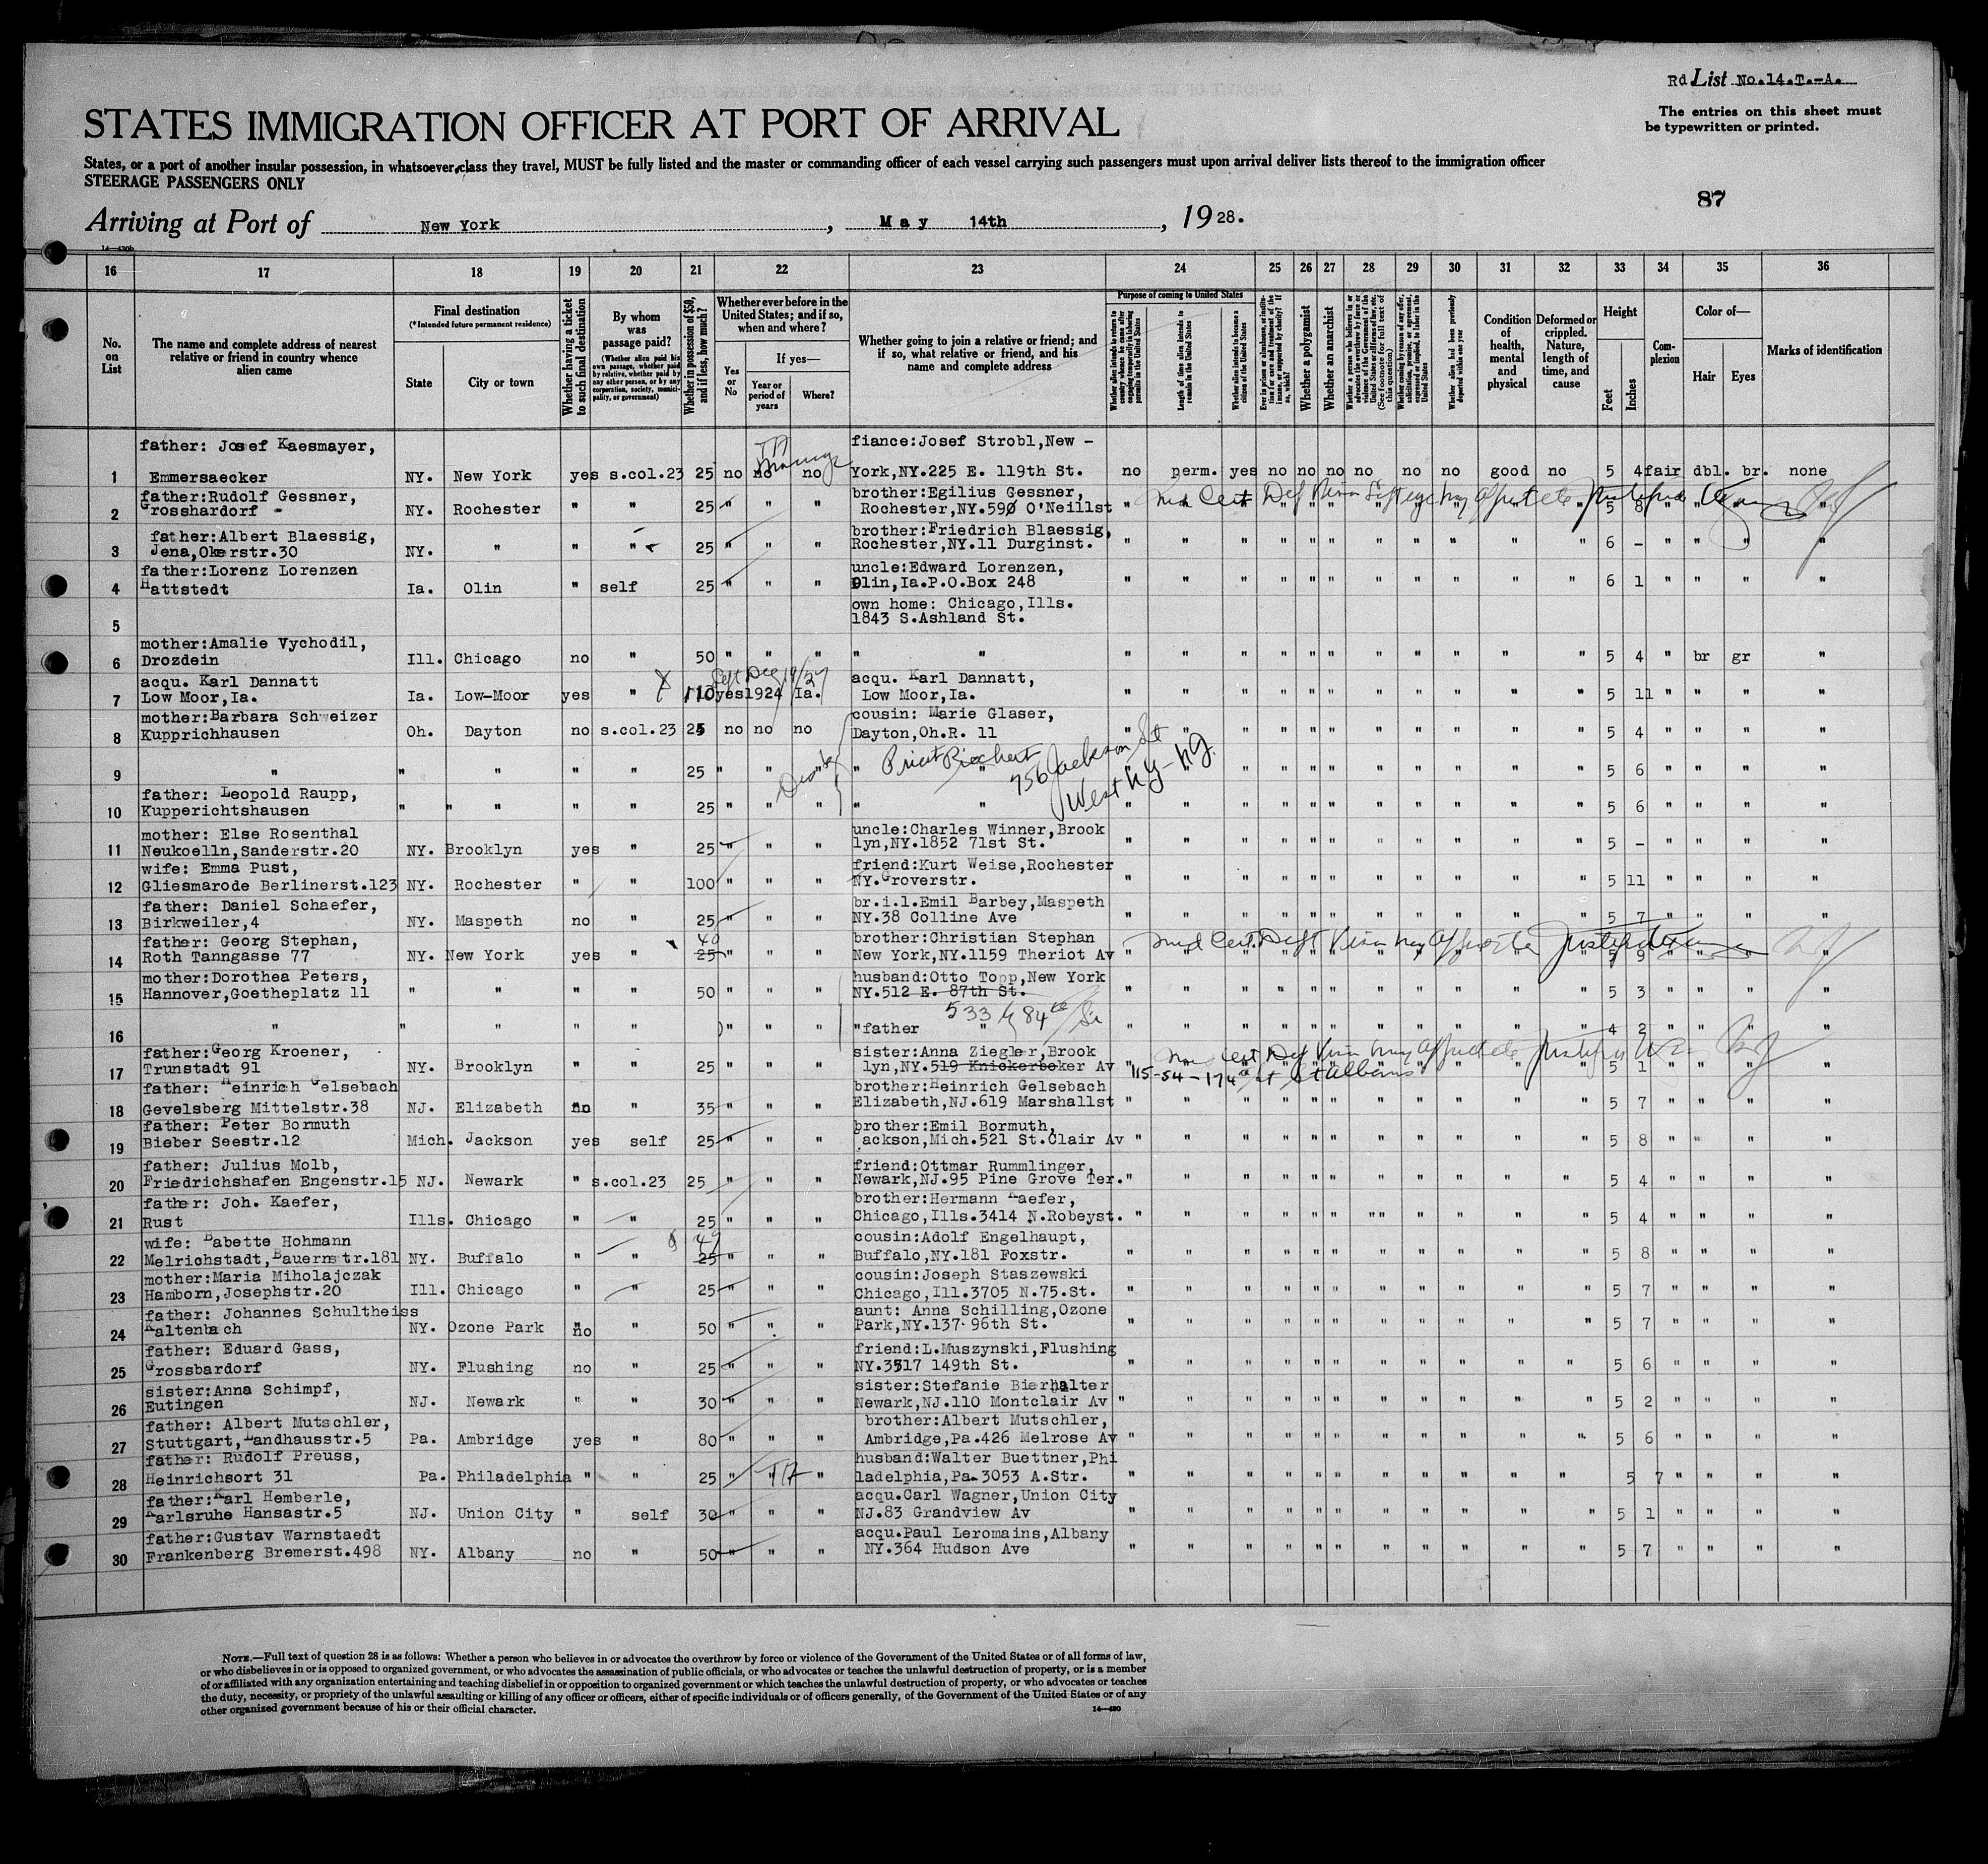 Rd List No.14.T.-A.
The entries on this sheet must
be typewritten or printed.
STATES IMMIGRATION OFFICER AT PORT OF ARRIVAL
States, or a port of another insular possession, in whatsoever class they travel, MUST be fully listed and the master or commanding officer of each vessel carrying such passengers must upon arrival deliver lists thereof to the immigration officer
STEERAGE PASSENGERS ONLY
87
Arriving at Port of New York, May 14th, 1928.
14—430b
16 17 18 19 20 21 22 23 24 25 26 27 28 29 30 31 32 33 34 35 36
No. on List
The name and complete address of nearest relative or friend in country whence alien came
Final destination
(*Intended future permanent residence)
State
City or town
Whether having a ticket to such final destination
By whom was passage paid?
(Whether alien paid his own passage, whether paid by relative, whether paid by any other person, or by any corporation, society, municipality, or government)
Whether in possession of $50, and if less, how much?
Whether ever before in the United States; and if so, when and where?
Yes or No
If yes—
Year or period of years
Where?
Whether going to join a relative or friend; and if so, what relative or friend, and his name and complete address
Purpose of coming to United States
Whether alien intends to return to country whence he came after engaging temporarily in laboring pursuits in the United States
Length of time alien intends to remain in the United States
Whether alien intends to become a citizen of the United States
Ever in prison or almshouse, or institution for care and treatment of the insane, or supported by charity? If so, which?
Whether a polygamist
Whether an anarchist
Whether a person who believes in or advocates the overthrow by force or violence of the Government of the United States or all forms of law, etc. (See footnote for full text of this question)
Whether coming by reason of any offer, solicitation, promise, or agreement, expressed or implied, to labor in the United States
Whether alien had been previously deported within one year
Condition of health, mental and physical
Deformed or crippled. Nature, length of time, and cause
Height
Feet
Inches
Complexion
Color of—
Hair
Eyes
Marks of identification
father: Josef Kaesmayer, fiance:Josef Strobl,New -
1 Emmersaecker NY. New York yes s.col.23 25 no no no York,NY.225 E. 119th St. no perm. yes no no no no no no good no 5 4 fair dbl. br. none
father:Rudolf Gessner, brother:Egilius Gessner,
2 Grosshardorf NY. Rochester " " 25 " " " Rochester,NY.590 O'Neillst " 5 8 "
father:Albert Blaessig, brother:Friedrich Blaessig,
3 Jena,Okerstr.30 NY. " " " 25 " " " Rochester,NY.11 Durginst. " " " " " " " " " " " 6 - " " " "
father:Lorenz Lorenzen uncle:Edward Lorenzen,
4 Hattstedt Ia. Olin " self 25 " " " Olin,Ia.P.O.Box 248 " " " " " " " " " " " 6 1 " " " "
own home: Chicago,Ills.
5 1843 S.Ashland St.
mother:Amalie Vychodil,
6 Drozdein Ill. Chicago no " 50 " " " " " " " " " " " " " " " " 5 4 " br gr "
acqu. Karl Dannatt acqu. Karl Dannatt,
7 Low Moor,Ia. Ia. Low-Moor yes " 110 yes 1924 Ia. Low Moor,Ia. " " " " " " " " " " " 5 11 " " " "
mother:Barbara Schweizer cousin: Marie Glaser,
8 Kupprichhausen Oh. Dayton no s.col.23 25 no no no Dayton,Oh.R. 11 " " " " " " " " " " " 5 4 " " " "
9 " " " " " 25 " " " " " " " " " " " " " " " " 5 6 " " " "
756 Jackson St
West NY - NJ.
father: Leopold Raupp,
10 Kupperichtshausen " " " " 25 " " " " " " " " " " " " " " " 5 6 " " " "
mother: Else Rosenthal uncle:Charles Winner,Brook
11 Neukoelln,Sanderstr.20 NY. Brooklyn yes " 25 " " " lyn,NY.1852 71st St. " " " " " " " " " " " 5 - " " " "
wife: Emma Pust, friend:Kurt Weise,Rochester
12 Gliesmarode Berlinerst.123 NY. Rochester " " 100 " " " NY.Groverstr. " " " " " " " " " " " 5 11 " " " "
father: Daniel Schaefer, br.i.l.Emil Barbey,Maspeth
13 Birkweiler,4 NY. Maspeth no " 25 " " " NY.38 Colline Ave " " " " " " " " " " " 5 7 " " " "
father: Georg Stephan, 40 brother:Christian Stephan
14 Roth Tanngasse 77 NY. New York yes " 25 " " " New York,NY.1159 Theriot Av " 5 9 " " " "
mother:Dorothea Peters, husband:Otto Topp,New York
15 Hannover,Goetheplatz 11 " " " " 50 " " " NY.512 E. 87th St. " " " " " " " " " " " 5 3 " " " "
533 E 84th St
16 " " " " " " " " "father " " " " " " " " " " " " 4 2 " " " "
father:Georg Kroener, sister:Anna Ziegler,Brook
17 Trunstadt 91 NY. Brooklyn " " 25 " " " lyn,NY.519 Knickerbocker Av " 5 1 " " " "
115-54-174th St St Albans
father: Heinrich Gelsebach brother:Heinrich Gelsebach
18 Gevelsberg Mittelstr.38 NJ. Elizabeth no " 35 " " " Elizabeth,NJ.619 Marshallst " " " " " " " " " " " 5 7 " " " "
father: Peter Bormuth brother:Emil Bormuth,
19 Bieber Seestr.12 Mich. Jackson yes self 25 " " " ackson,Mich.521 St.Clair Av " " " " " " " " " " " 5 8 " " " "
father: Julius Molb, friend:Ottmar Rummlinger,
20 Friedrichshafen Engenstr.15 NJ. Newark " s.col.23 25 " " " Newark,NJ.95 Pine Grove Ter." " " " " " " " " " " 5 4 " " " "
father: Joh. Kaefer, brother:Hermann Kaefer,
21 Rust Ills. Chicago " " 25 " " " Chicago,Ills.3414 N.Robeyst. " " " " " " "" " " " " 5 4 " " " "
wife: Babette Hohmann cousin:Adolf Engelhaupt,
22 Melrichstadt,Bauernstr.181 NY. Buffalo " " 25 " " " Buffalo,NY.181 Foxstr. " " " " " " " " " " " 5 8 " " " "
mother:Maria Miholajczak cousin:Joseph Staszewski
23 Hamborn,Josephstr.20 Ill. Chicago " " 25 " " " Chicago,Ill.3705 N.75.St. " " " " " " " " " " " 5 7 " " " "
father: Johannes Schultheiss aunt: Anna Schilling,Ozone
24 Kaltenbach NY. Ozone Park no " 50 " " " Park,NY.137-96th St. " " " " " " " " " " " 5 7 " " " "
father: Eduard Gass, friend:L.Muszynski,Flushing
25 Grossbardorf NY. Flushing no " 25 " " " NY.3517 149th St. " " " " " " " " " " " 5 6 " " " "
sister:Anna Schimpf, sister:Stefanie Bierhalter
26 Eutingen NJ. Newark " " 30 " " " Newark,NJ.110 Montclair Av " " " " " " " " " " " 5 2 " " " "
father: Albert Mutschler, brother:Albert Mutschler,
27 Stuttgart,Landhausstr.5 Pa. Ambridge yes " 80 " " " Ambridge,Pa.426 Melrose Av " " " " " " " " " " " 5 6 " " " "
father: Rudolf Preuss, husband:Walter Buettner,Phi
28 Heinrichsort 31 Pa. Philadelphia " " 25 " " " ladelphia,Pa.3053 A.Str. " " " " " " " " " " " 5 7 " " " "
father:Karl Hemberle, acqu.Carl Wagner,Union City
29 Karlsruhe Hansastr.5 NJ. Union City " self 30 " " " NJ.83 Grandview Av " " " " " " " " " " " 5 1 " " " "
father:Gustav Warnstaedt acqu.Paul Leromains,Albany
30 Frankenberg Bremerst.498 NY. Albany no " 50 " " " NY.364 Hudson Ave " " " " " " " " " " " 5 7 " " " "
NOTE.—Full text of question 28 is as follows: Whether a person who believes in or advocates the overthrow by force or violence of the Government of the United States or of all forms of law,
or who disbelieves in or is opposed to organized government, or who advocates the assassination of public officials, or who advocates or teaches the unlawful destruction of property, or is a member
of or affiliated with any organization entertaining and teaching disbelief in or opposition to organized government or which teaches the unlawful destruction of property, or who advocates or teaches
the duty, necessity, or propriety of the unlawful assaulting or killing of any officer or officers, either of specific individuals or of officers generally, of the Government of the United States or of any
other organized government because of his or their official character.
14—430